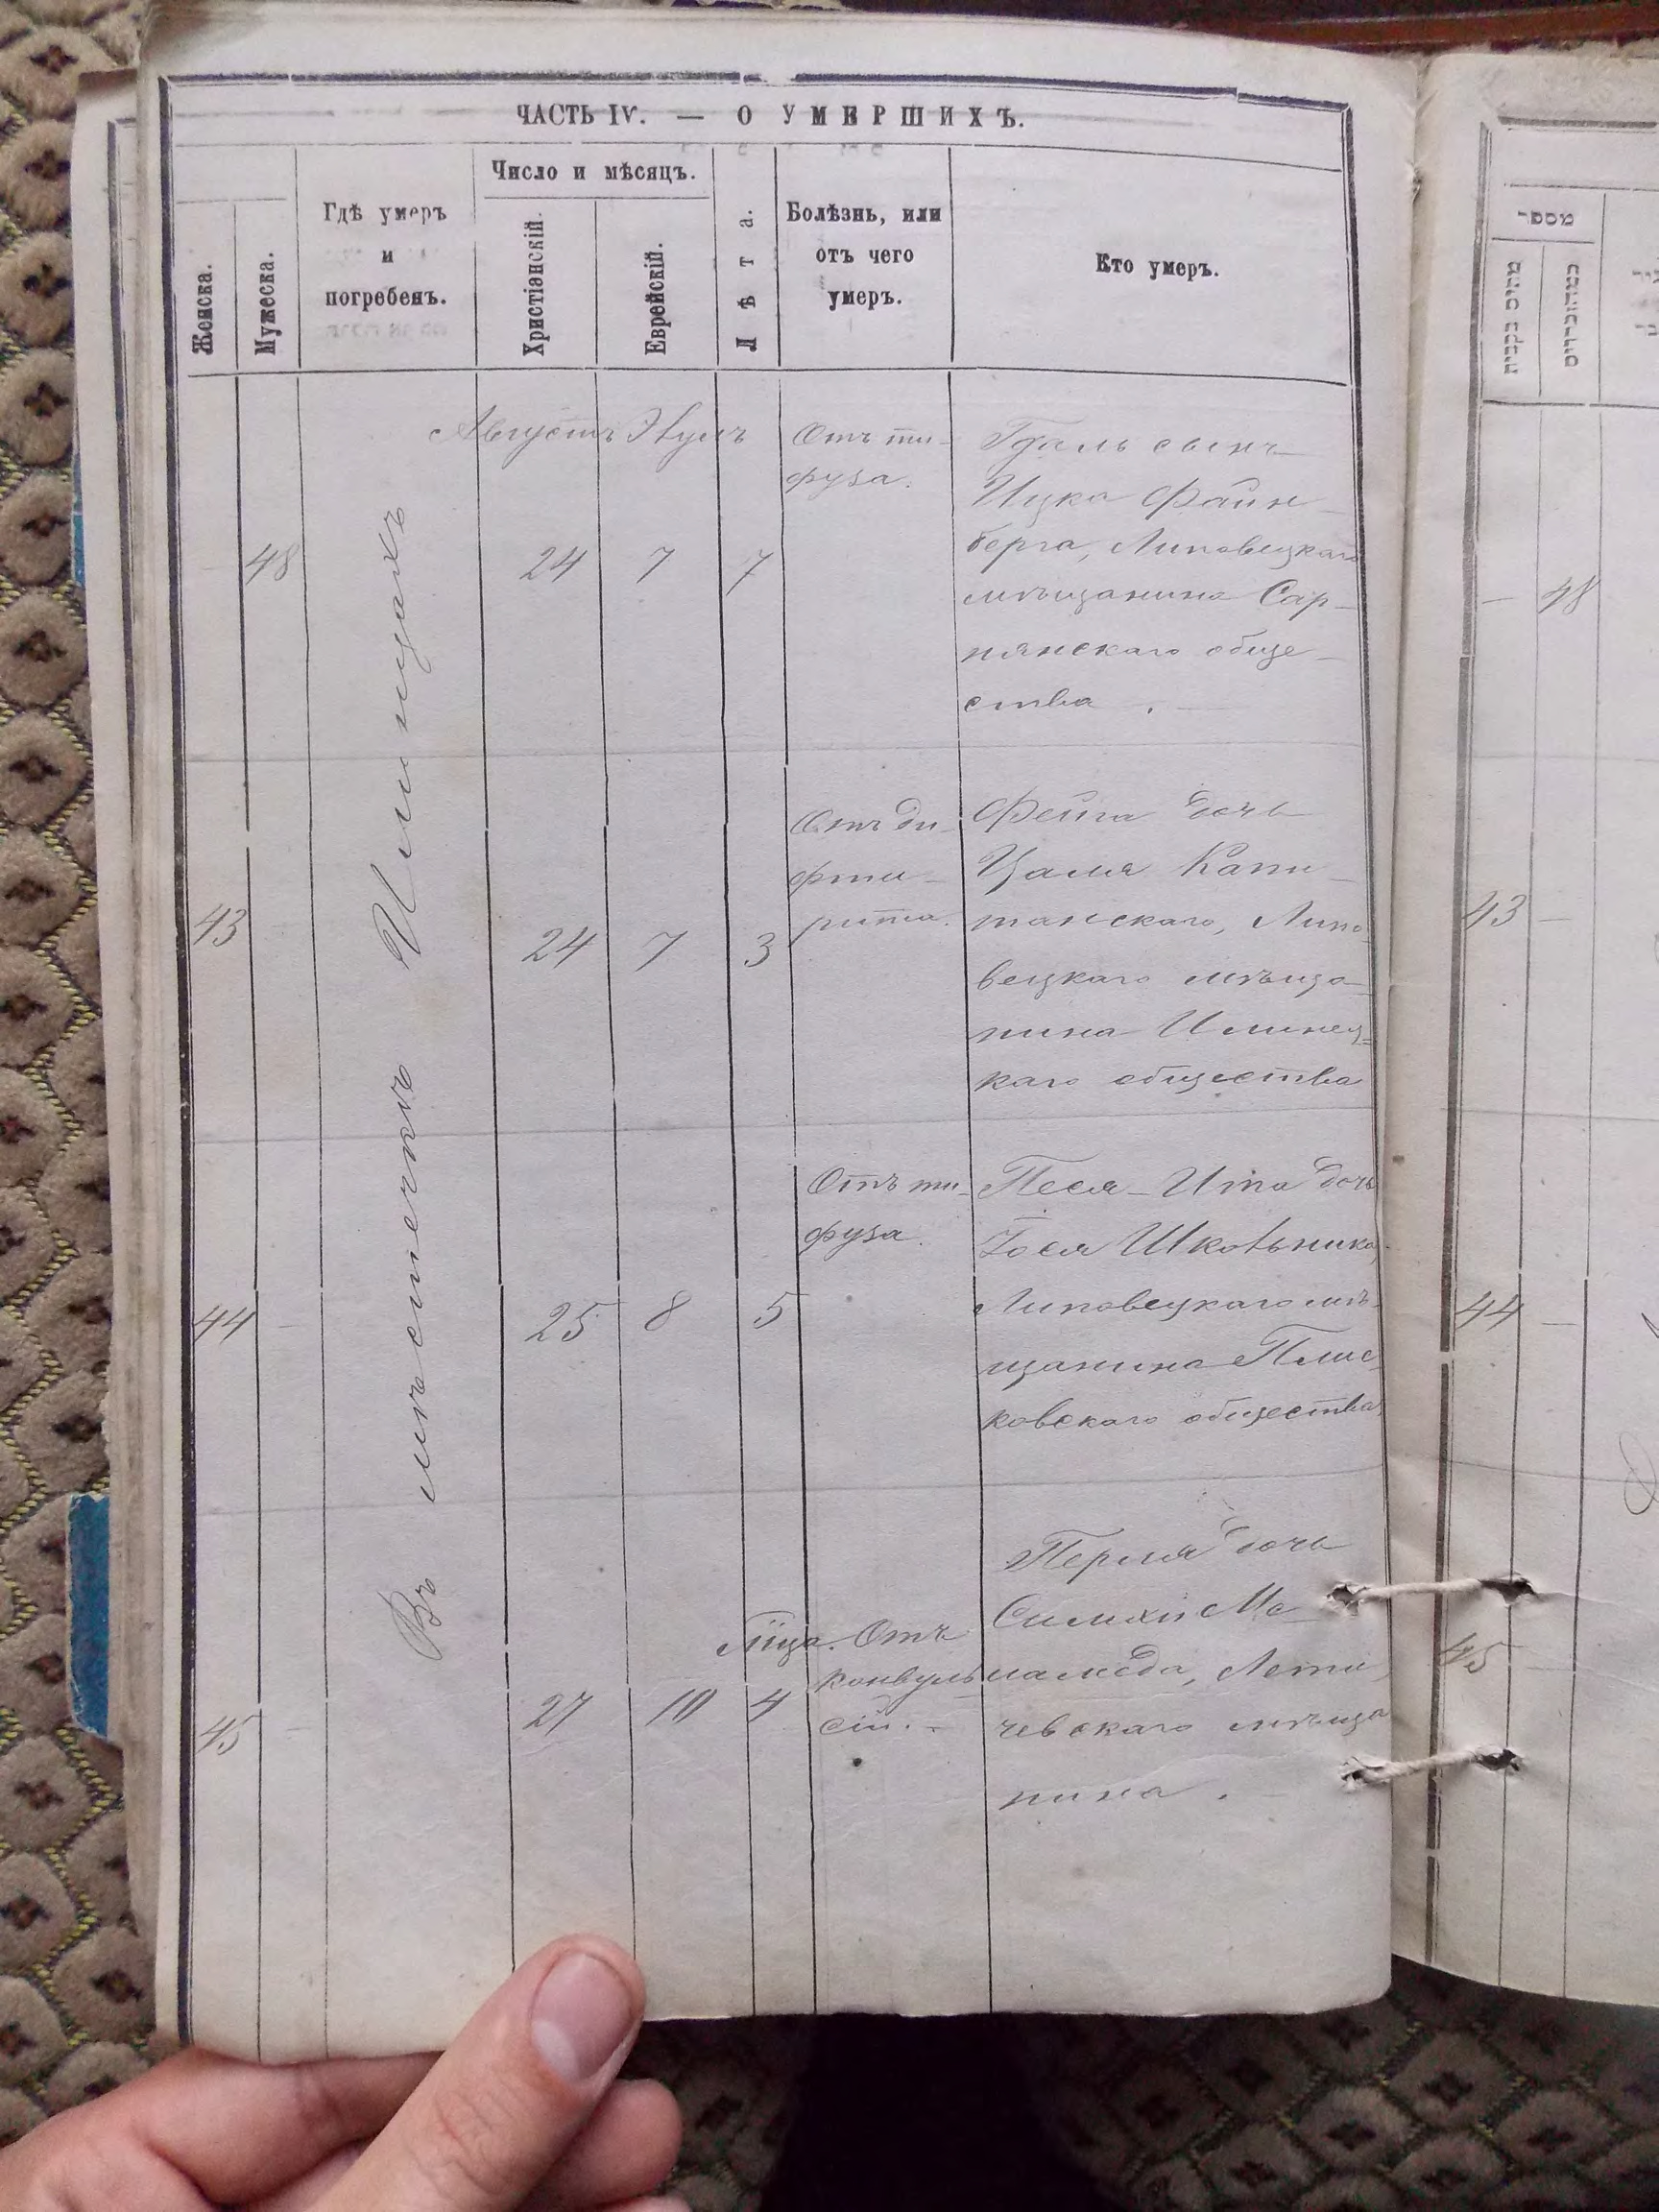 ЧАСТЬ IV. — О УМЕРШИХЪ.
Женска.
Мужеска.
Гдѣ умеръ
и
погребенъ.
Число и мѣсяцъ.
Христіанскій.
Еврейскій.
Лѣта.
Болѣзнь, или
отъ чего
умеръ.
Кто умеръ.
Въ мѣстечкѣ Илинцахъ
Августъ Элулъ
48
24
7
7
Отъ ти-
фуза.
сынъ
Ицка Файн-
берга, Липовецкаго
мѣщанина Сар-
нянскаго обще-
ства.
43
24
7
3
Отъ ди-
фте-
рита.
Фейга дочь
Цаля Капи-
танскаго, Липо-
вецкаго мѣща-
нина Илинец-
каго общества
44
25
8
5
Отъ ти-
фуза.
Песя-Ита дочь
Іося Школьника,
Липовецкаго мѣ-
щанина Плис-
ковскаго общества
45
27
10
4
Отъ
конвуль-
сій.
Перля дочь
Симхи Ме-
ламеда, Лети-
чевскаго мѣща
нина.
מספר
48
43
44
45